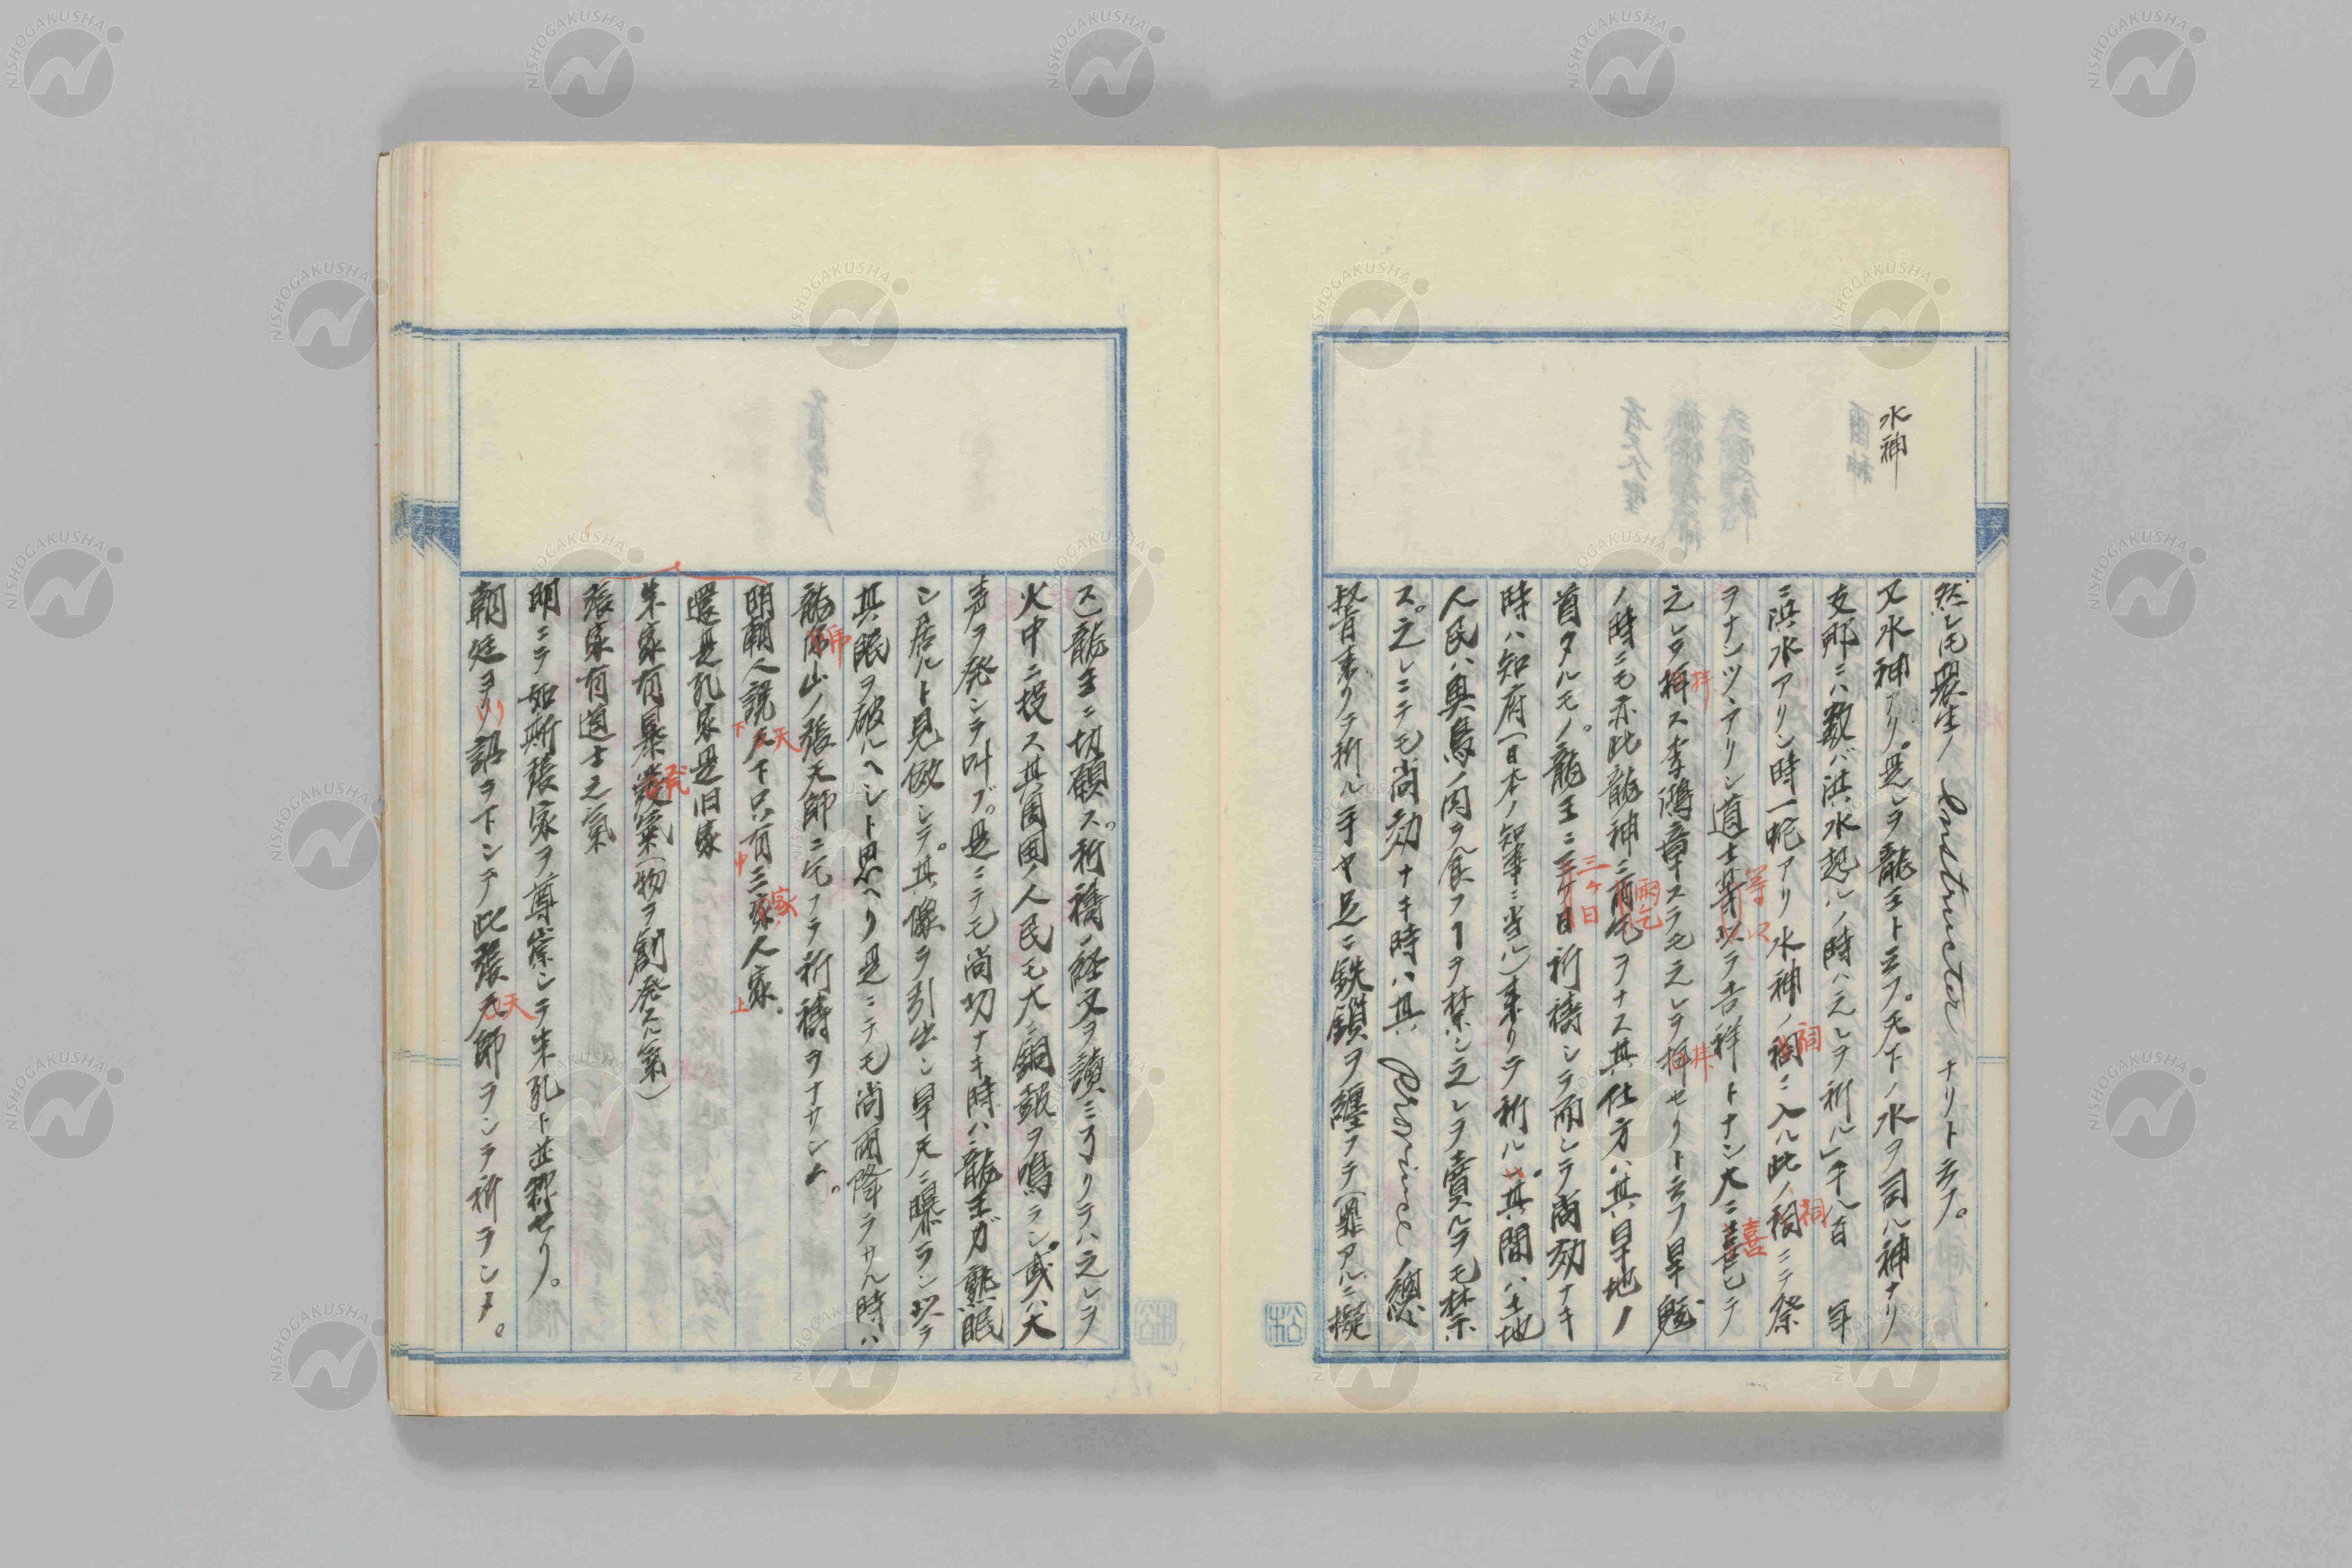 水神
然レ𪜈衆生ノ Instructer ナリト云フ。
又水神アリ。是レヲ龍王ト云フ。天下ノ水ヲ司ル神ナリ
支那ニハ数バ洪水起ルノ時ハ之レヲ祈ル」千八百 年
ニ洪水アリシ時一蛇アリ水神ノ祠ニ入ル此ノ祠ニテ祭
ヲナシツヽアリシ道士等以テ吉祥トナシ大ニ喜ヒテ
之レヲ拝ス李鴻章スラモ之レヲ拝セリト云フ旱魃
ノ時ニモ亦此龍神ニ雨乞ヲナス其仕方ハ其旱地ノ
首タルモノ。龍王ニ三ケ日祈禱シテ而シテ尚効ナキ
時ハ知府(日本ノ知事ニ当ル)来リテ祈ル。其間ハ土地
人民ハ魚鳥ノ肉ヲ食フヿヲ禁シ之レヲ賣ルヲモ禁
ス。之レニテモ尚効ナキ時ハ其 Province ノ總
督来リテ祈ル手ヤ足ニ鉄鎖ヲ纏フテ(罪アルニ擬
ス)龍王ニ切願ス。祈禱ノ経文ヲ讀ミ了リテハ之レヲ
火中ニ投ス其周囲ノ人民モ大ニ銅鼓ヲ鳴ラシ。或ハ大
声ヲ発シテ叫ブ。是ニテモ尚切ナキ時ハ龍王ガ熟眠
シ居ルト見做シテ。其像ヲ引出シ旱天ニ曝ラシ以テ
其眠ヲ破ルヘシト思ヘリ是ニテモ尚雨降ラサル時ハ
龍虎山ノ張天師ニ乞フテ祈禱ヲナサシム。
虎
明朝人説天下只有三家人家。
天
下
中
家
上
還是孔家是旧家
朱家有暴發氣(物ヲ創発スル氣)
發
張家有道士之氣
明ニテ如斯張家ヲ尊崇シテ朱孔ト並称せり。
朝廷ヨリ詔ヲ下シテ此張天師ヲシテ祈ラシム。
天
祠
祠
等
以
喜
拝
拝
雨乞
三ケ日